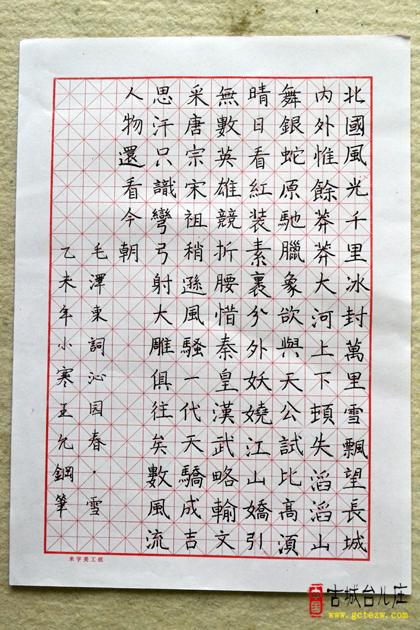 北國風光千里冰封萬里雪飄望長城
内外惟餘莽莽大河上下頓失滔滔山
舞銀蛇原馳臘象欲與天公試比高湏
晴日看紅装素裹分外妖嬈江山嬌引
無數英雄競折腰惜秦皇漢武略輸文
采唐宗宋祖稍遜風騷一代天驕成吉
思汗只識彎弓射大雕俱往矣數風流
人物還看今朝
毛澤東詞沁园春 雪
乙未年小寒王允鋼筆
米字美工纸
中国 古城台儿庄
www.gctezw.com